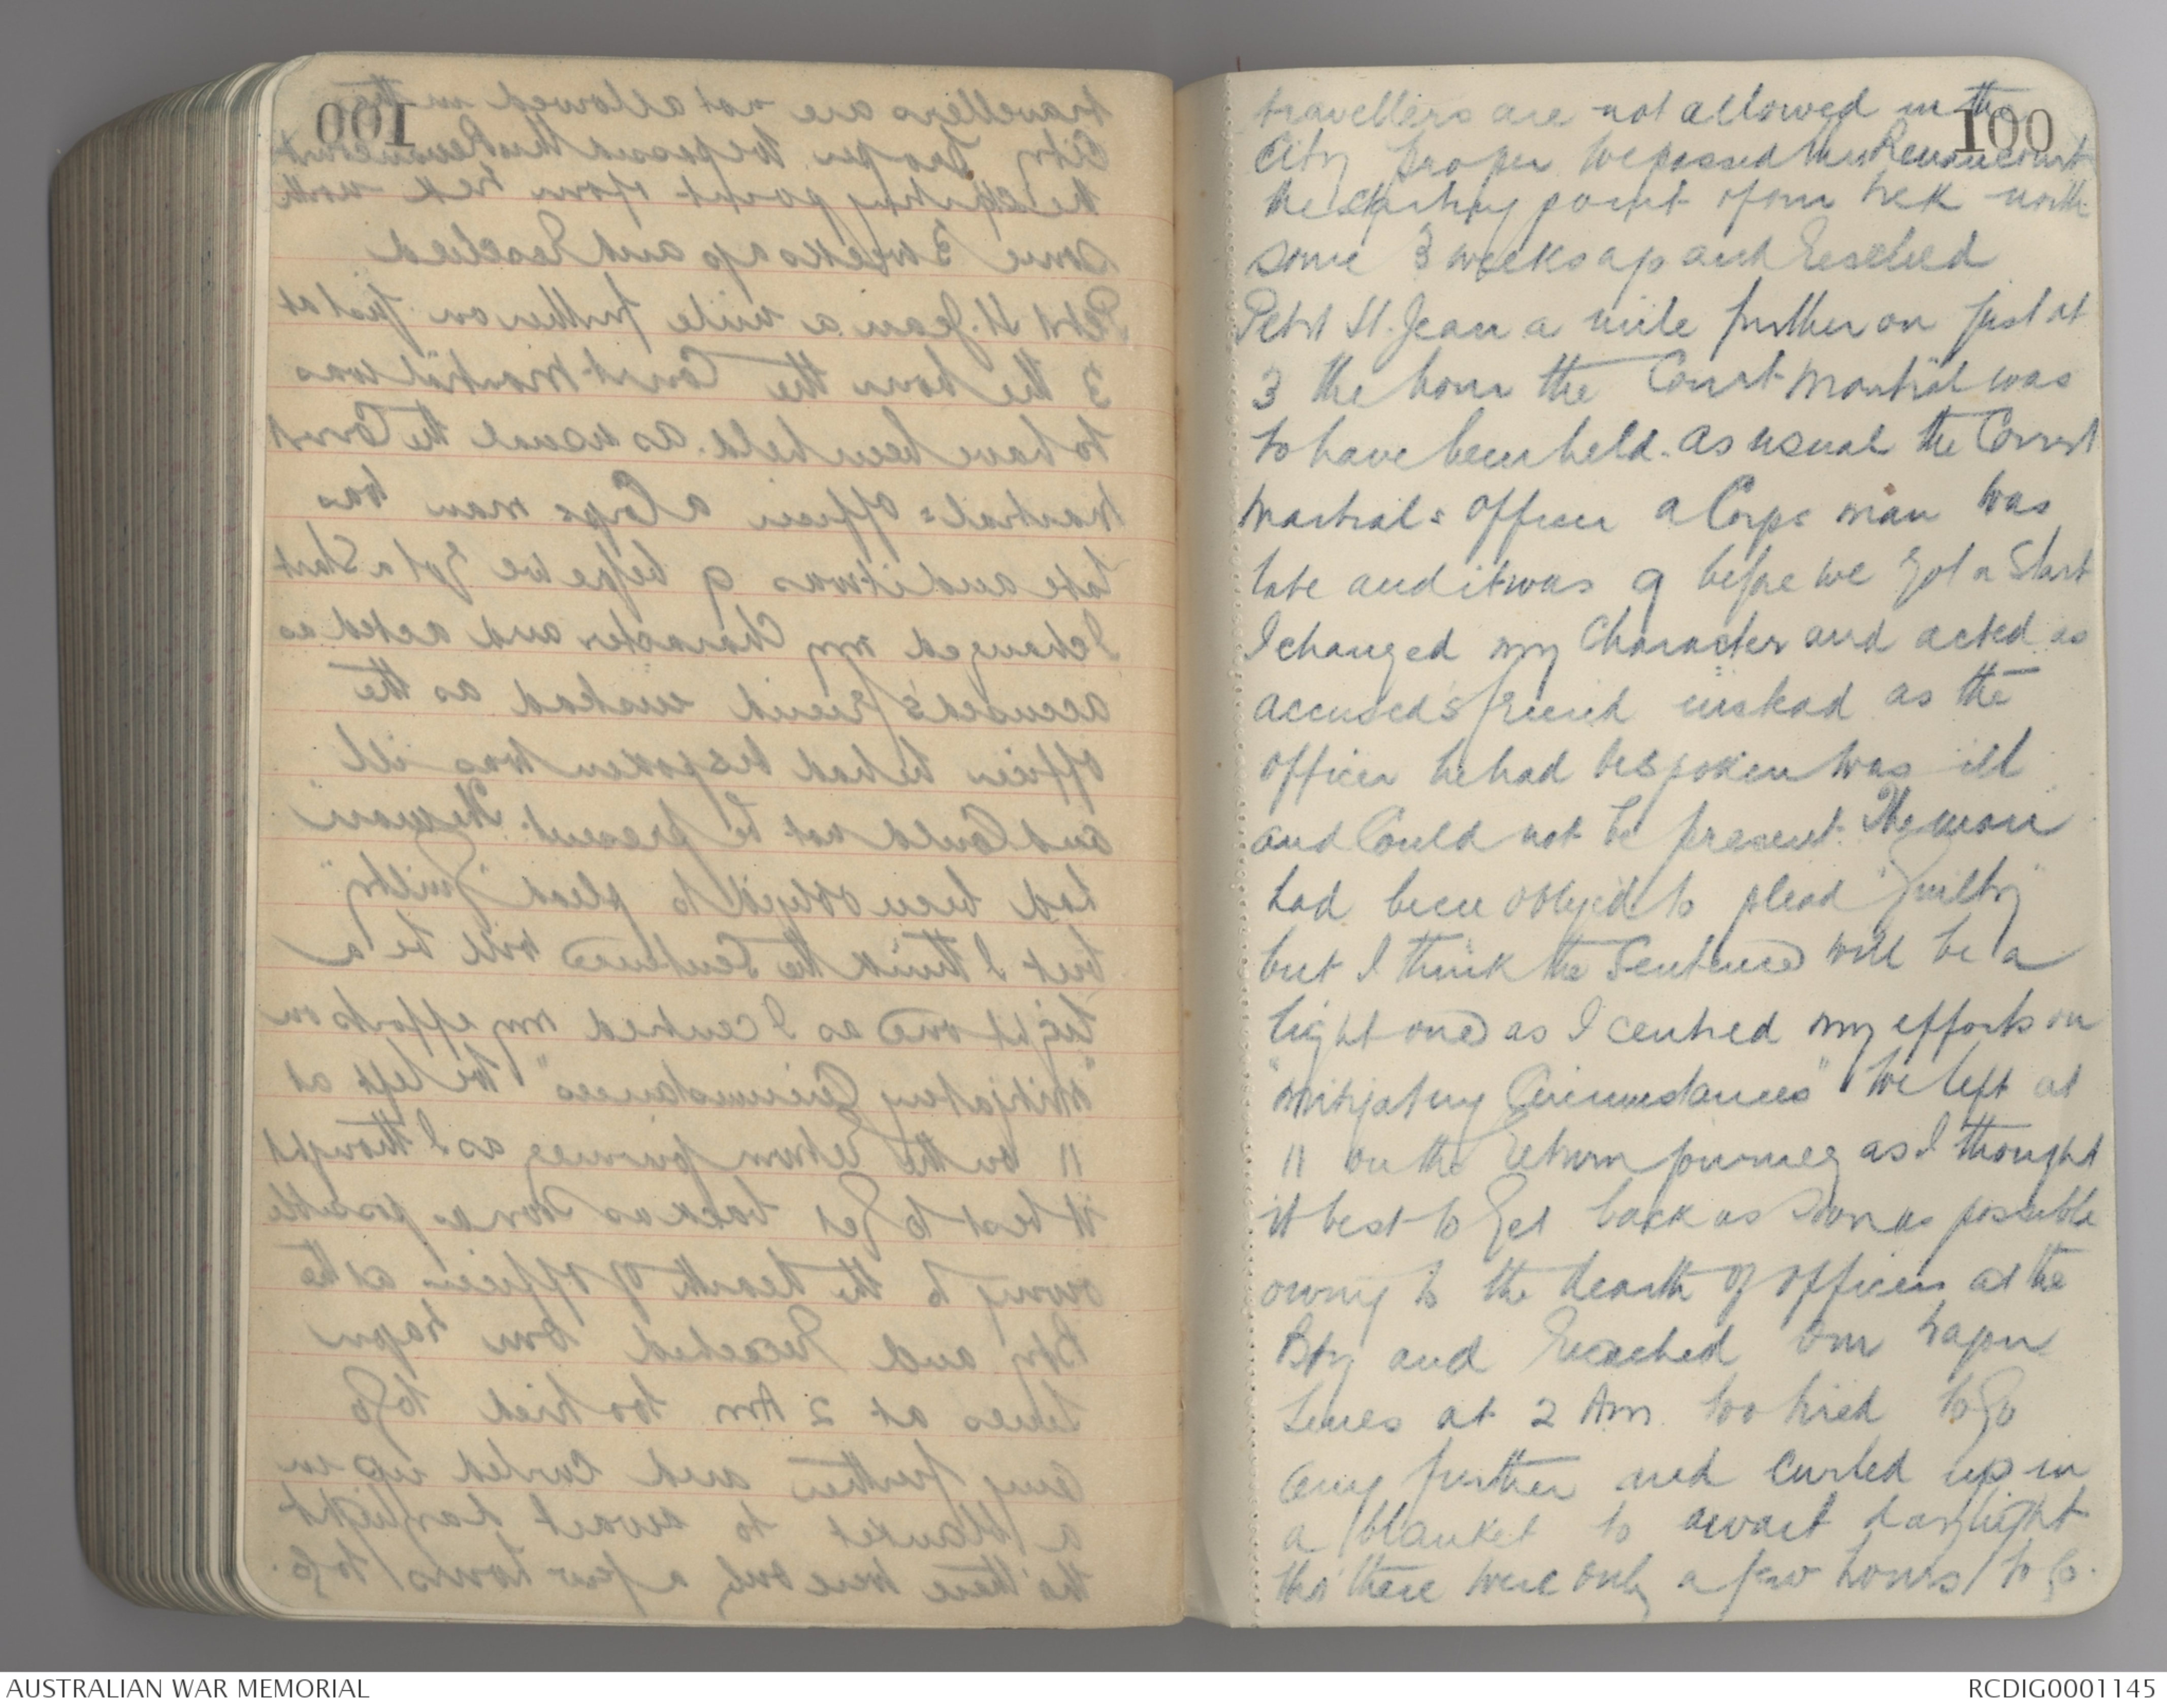 100
travellers are not allowed in the
City proper We passed thru Renancourt
the starting point of our trek north
some 3 weeks ago and reached
Petit St. Jean a mile further on just at
3 the hour the Court Martial was
to have been held. As usual the Court
Martials Officer a Corps man was
late and it was 9 before we got a start
I changed my Character and acted as
accused's friend instead as the
officer he had bespoken was ill
and Could not be present. The man
had been obliged to plead "Guilty"
but I think the Sentence will be a
light one as I centred my efforts on
"mitigating Circumstances" We left at
11 on the return journey as I thought
it best to get back as soon as possible
owing to the dearth of officers at the
Bty and reached our wagon
lines at 2 Am. too tired to go
any further and curled up in
a blanket to await daylight
tho' there were only a few hours to go.
AUSTRALIAN WAR MEMORIAL
RCDIG0001145